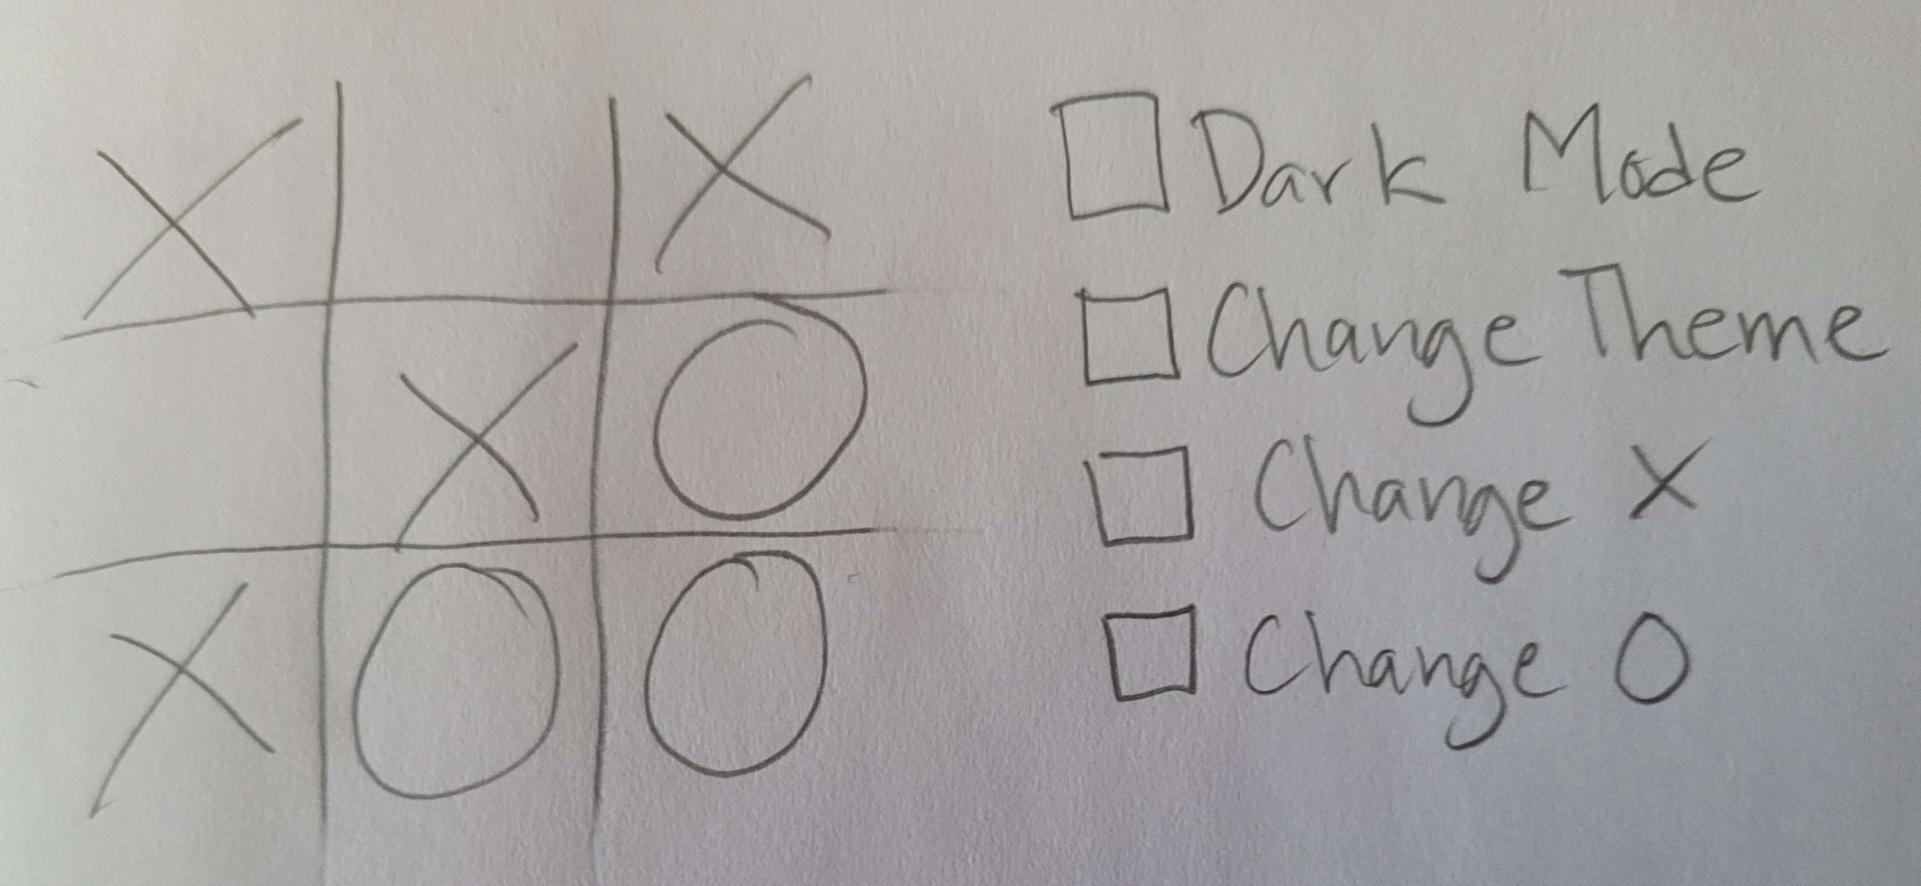 X X
X O
X O O
Dark Mode
Change Theme
Change X
Change O